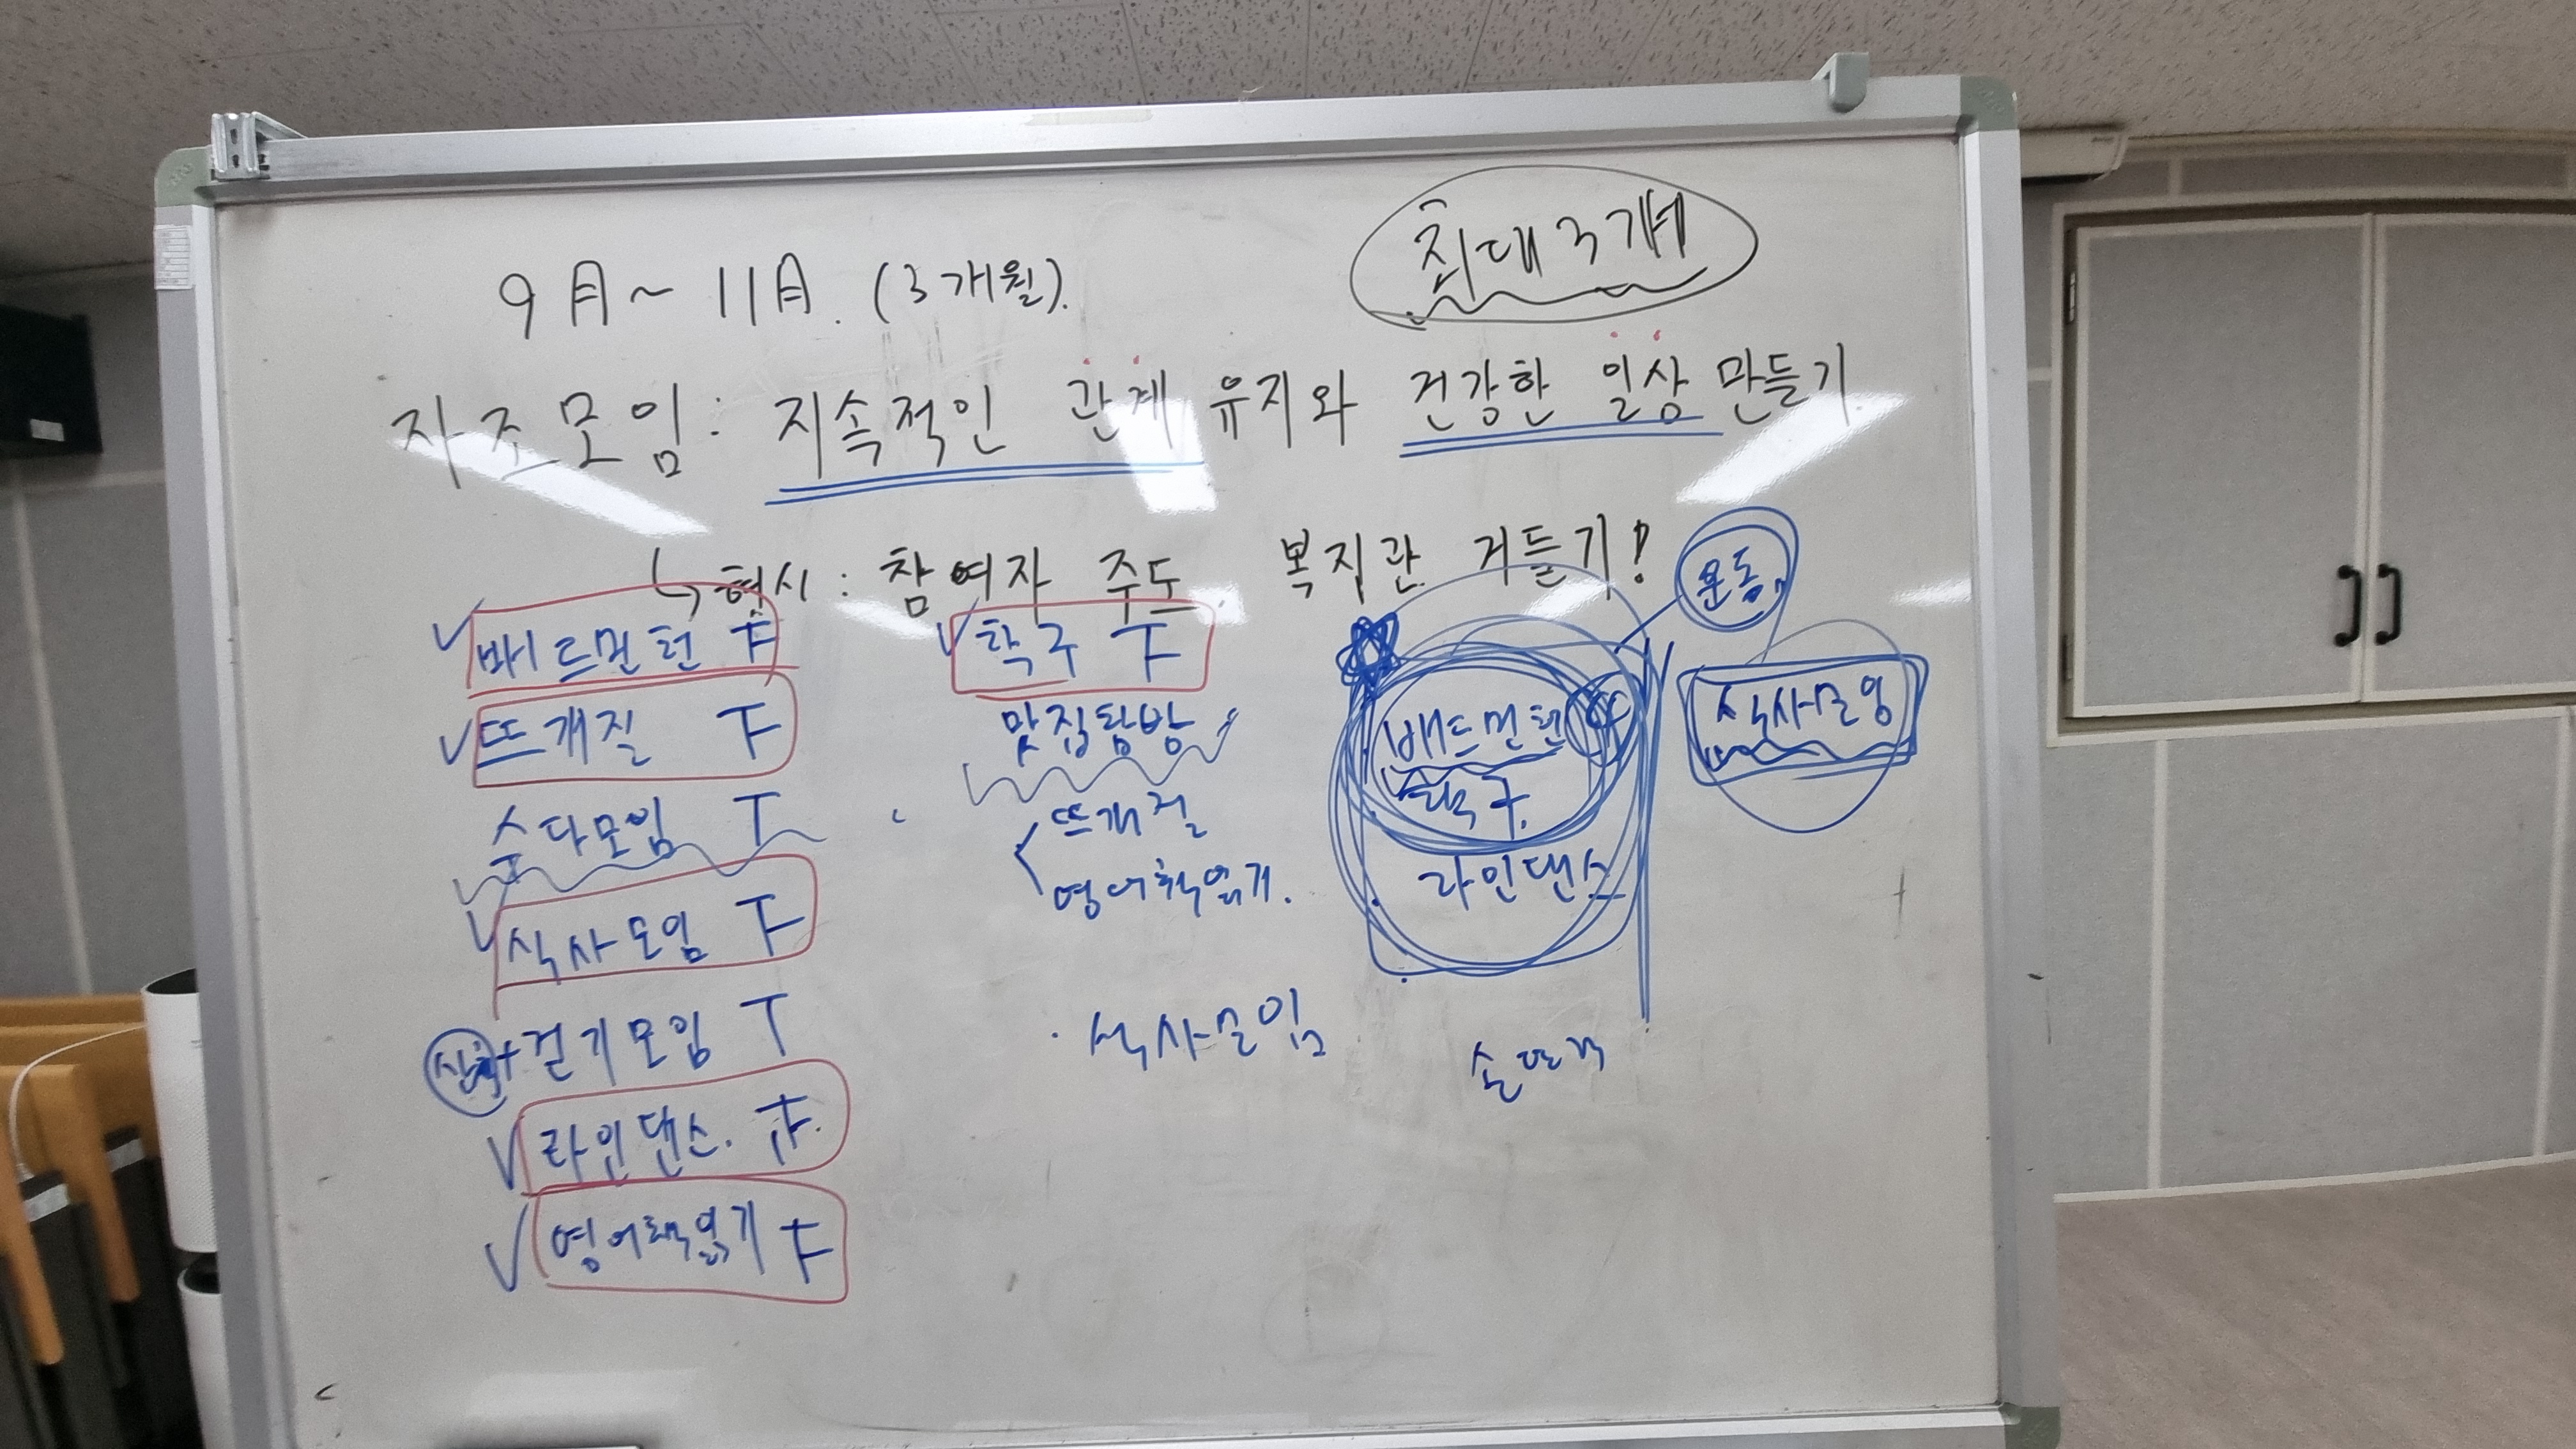 최대 3개
9月~11月. (3개월).
자조모임: 지속적인 관계 유지와 건강한 일상 만들기.
↳ 형식: 참여자 주도. 복지관 거들기!
운동
✓ 배드민턴
✓ 뜨개질
수다모임
✓ 식사모임
+ 걷기모임
✓ 라인댄스.
✓ 영어책읽기
✓ 탁구
맛집탐방
뜨개질
영어책읽기.
· 식사모임
배드민턴
탁구.
라인댄스
식사모임